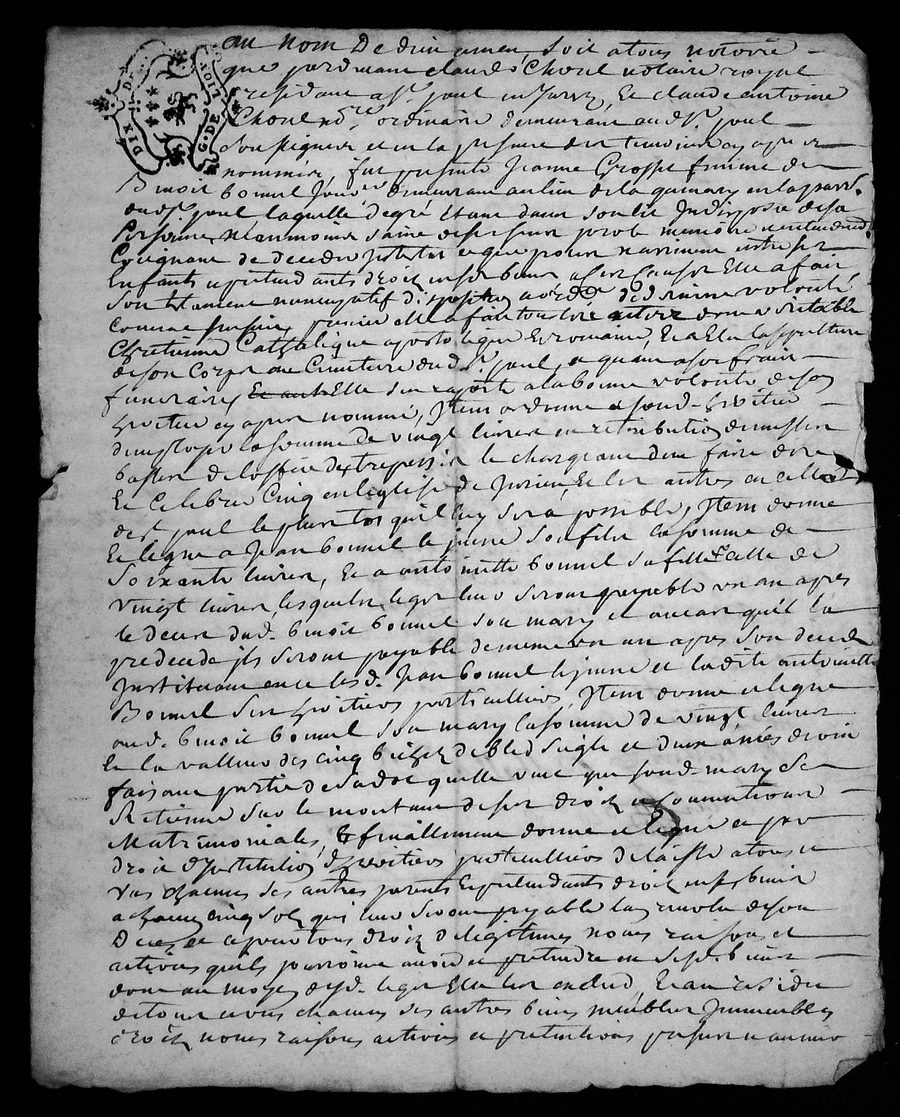 DIX DE
G. DE LION
au nom De dieu amen, soit atous notoire
que pardevant claude Choul notaire royal
residant a St. paul en Jarez, Et claude antoine
Choul nore. ordinaire demeurant aud St. paul
soussignes et en la presence des temoins cy apres
nommés, fut presente Jeanne Grosse femme de
Benoit bonnel Jour. demeurant au lieu de la en la parr.
dud St. paul laquelle degré Etant dans son lit Indisposée desa
personne neanmoins saine de ses sens parole memoire et entendemt.
Craignant de deceder intestat et que pour raison entre ses
Enfants et pretendants droit en ses biens Elle a fait
son testament nuncupatif disposition et ord. de derniere volonté
Comme sensuit, premier Ella fait sur elle comme veritable
Chretienne Catholique apostolique Et romaine, Et a Elu la sepulture
de son Corps au Cimetiere dud St. paul, a quant a ses frais
funeraires Elle sen raporte ala bonne volonté de son
heritier cy apres nommé, Item ordonne a sond. heritier
demployer la somme de vingt livres en retribution de messes
basses de loffice des trepassés le chargeant den faire dire
Et Celebrer Cinq en leglise de Et les autres en celle
de St paul le plus tot quil luy sera possible, Item donne
Et legue a Jean bonnel le jeune son fils la somme de
soixante livres, Et a antoinette bonnel sa fille Celle de
vingt livres lesquels legs leur seront payable un an apres
le deces dud. benoit bonnel son mary et au cas quil la
predecede ils seront payable de meme un an apres son deces
Instituant en ce lesd. Jean bonnel le jeune et ladite antoinette
Bonnel ses heritiers particulliers, Item donne et legue
aud. benoit bonnel son mary la somme de vingt livres
Et la valleur des cinq bichets de bled seigle et deux anées de vin
faisant partie de sa dot quelle veut que sond. mary se
Retienne sur le montant de ses droits et Conventions
Matrimoniales, Et finallement donne et legue et par
droit dInstitution dheritiers particulliers delaisse a tous et
uns chacuns ses autres parents Et pretendants droit en ses biens
a chacun cinq sols qui leur seront payable lan revolu de son
Deces et ce pour tous droits de legitimes noms raisons et
actions quils pourroient avoir et pretendre en sesd. biens
dont au moyen desd. legs Elle les en exclud, Et au residu
de tous et uns chacuns ses autres biens meubles Immeubles
droits noms raisons actions et pretentions presents et avenir